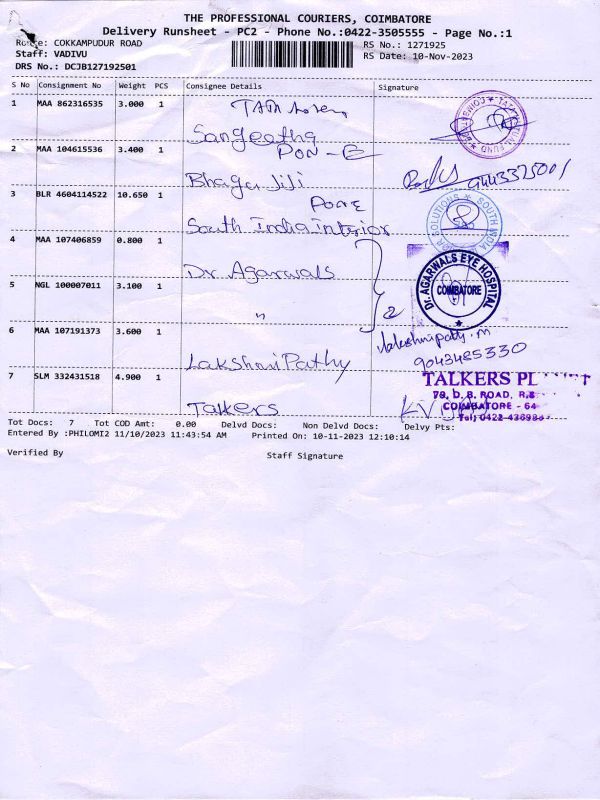 THE PROFESSIONAL COURIERS, COIMBATORE
Delivery Runsheet - PC2 - Phone No.:0422-3505555 - Page No.:1
Route: COKKAMPUDUR ROAD RS No.: 1271925
Staff: VADIVU RS Date: 10-Nov-2023
DRS No.: DCJB127192501
S No Consignment No Weight PCS Consignee Details Signature
1 MAA 862316535 3.000 1 TATA
Sangeetha
2 MAA 104615536 3.400 1 PON-E
Bhagu Jiji 9443325001
3 BLR 4604114522 10.650 1 PONE
South India Interior
SOLUTIONS * SOUTH INDIA
4 MAA 107406859 0.800 1
Dr. Agarwals
DR. AGARWALS EYE HOSPITAL
COIMBATORE
5 NGL 100007011 3.100 1
" 2
6 MAA 107191373 3.600 1 Lakshmipathy. M
9043485330
Lakshmi Pathy
7 SLM 332431518 4.900 1 TALKERS
79, D. B. ROAD, R.S
COIMBATORE - 64
Talkers
Tot Docs: 7 Tot COD Amt: 0.00 Delvd Docs: Non Delvd Docs: Delvy Pts:
Entered By :PHILOMI2 11/10/2023 11:43:54 AM Printed On: 10-11-2023 12:10:14
Verified By Staff Signature